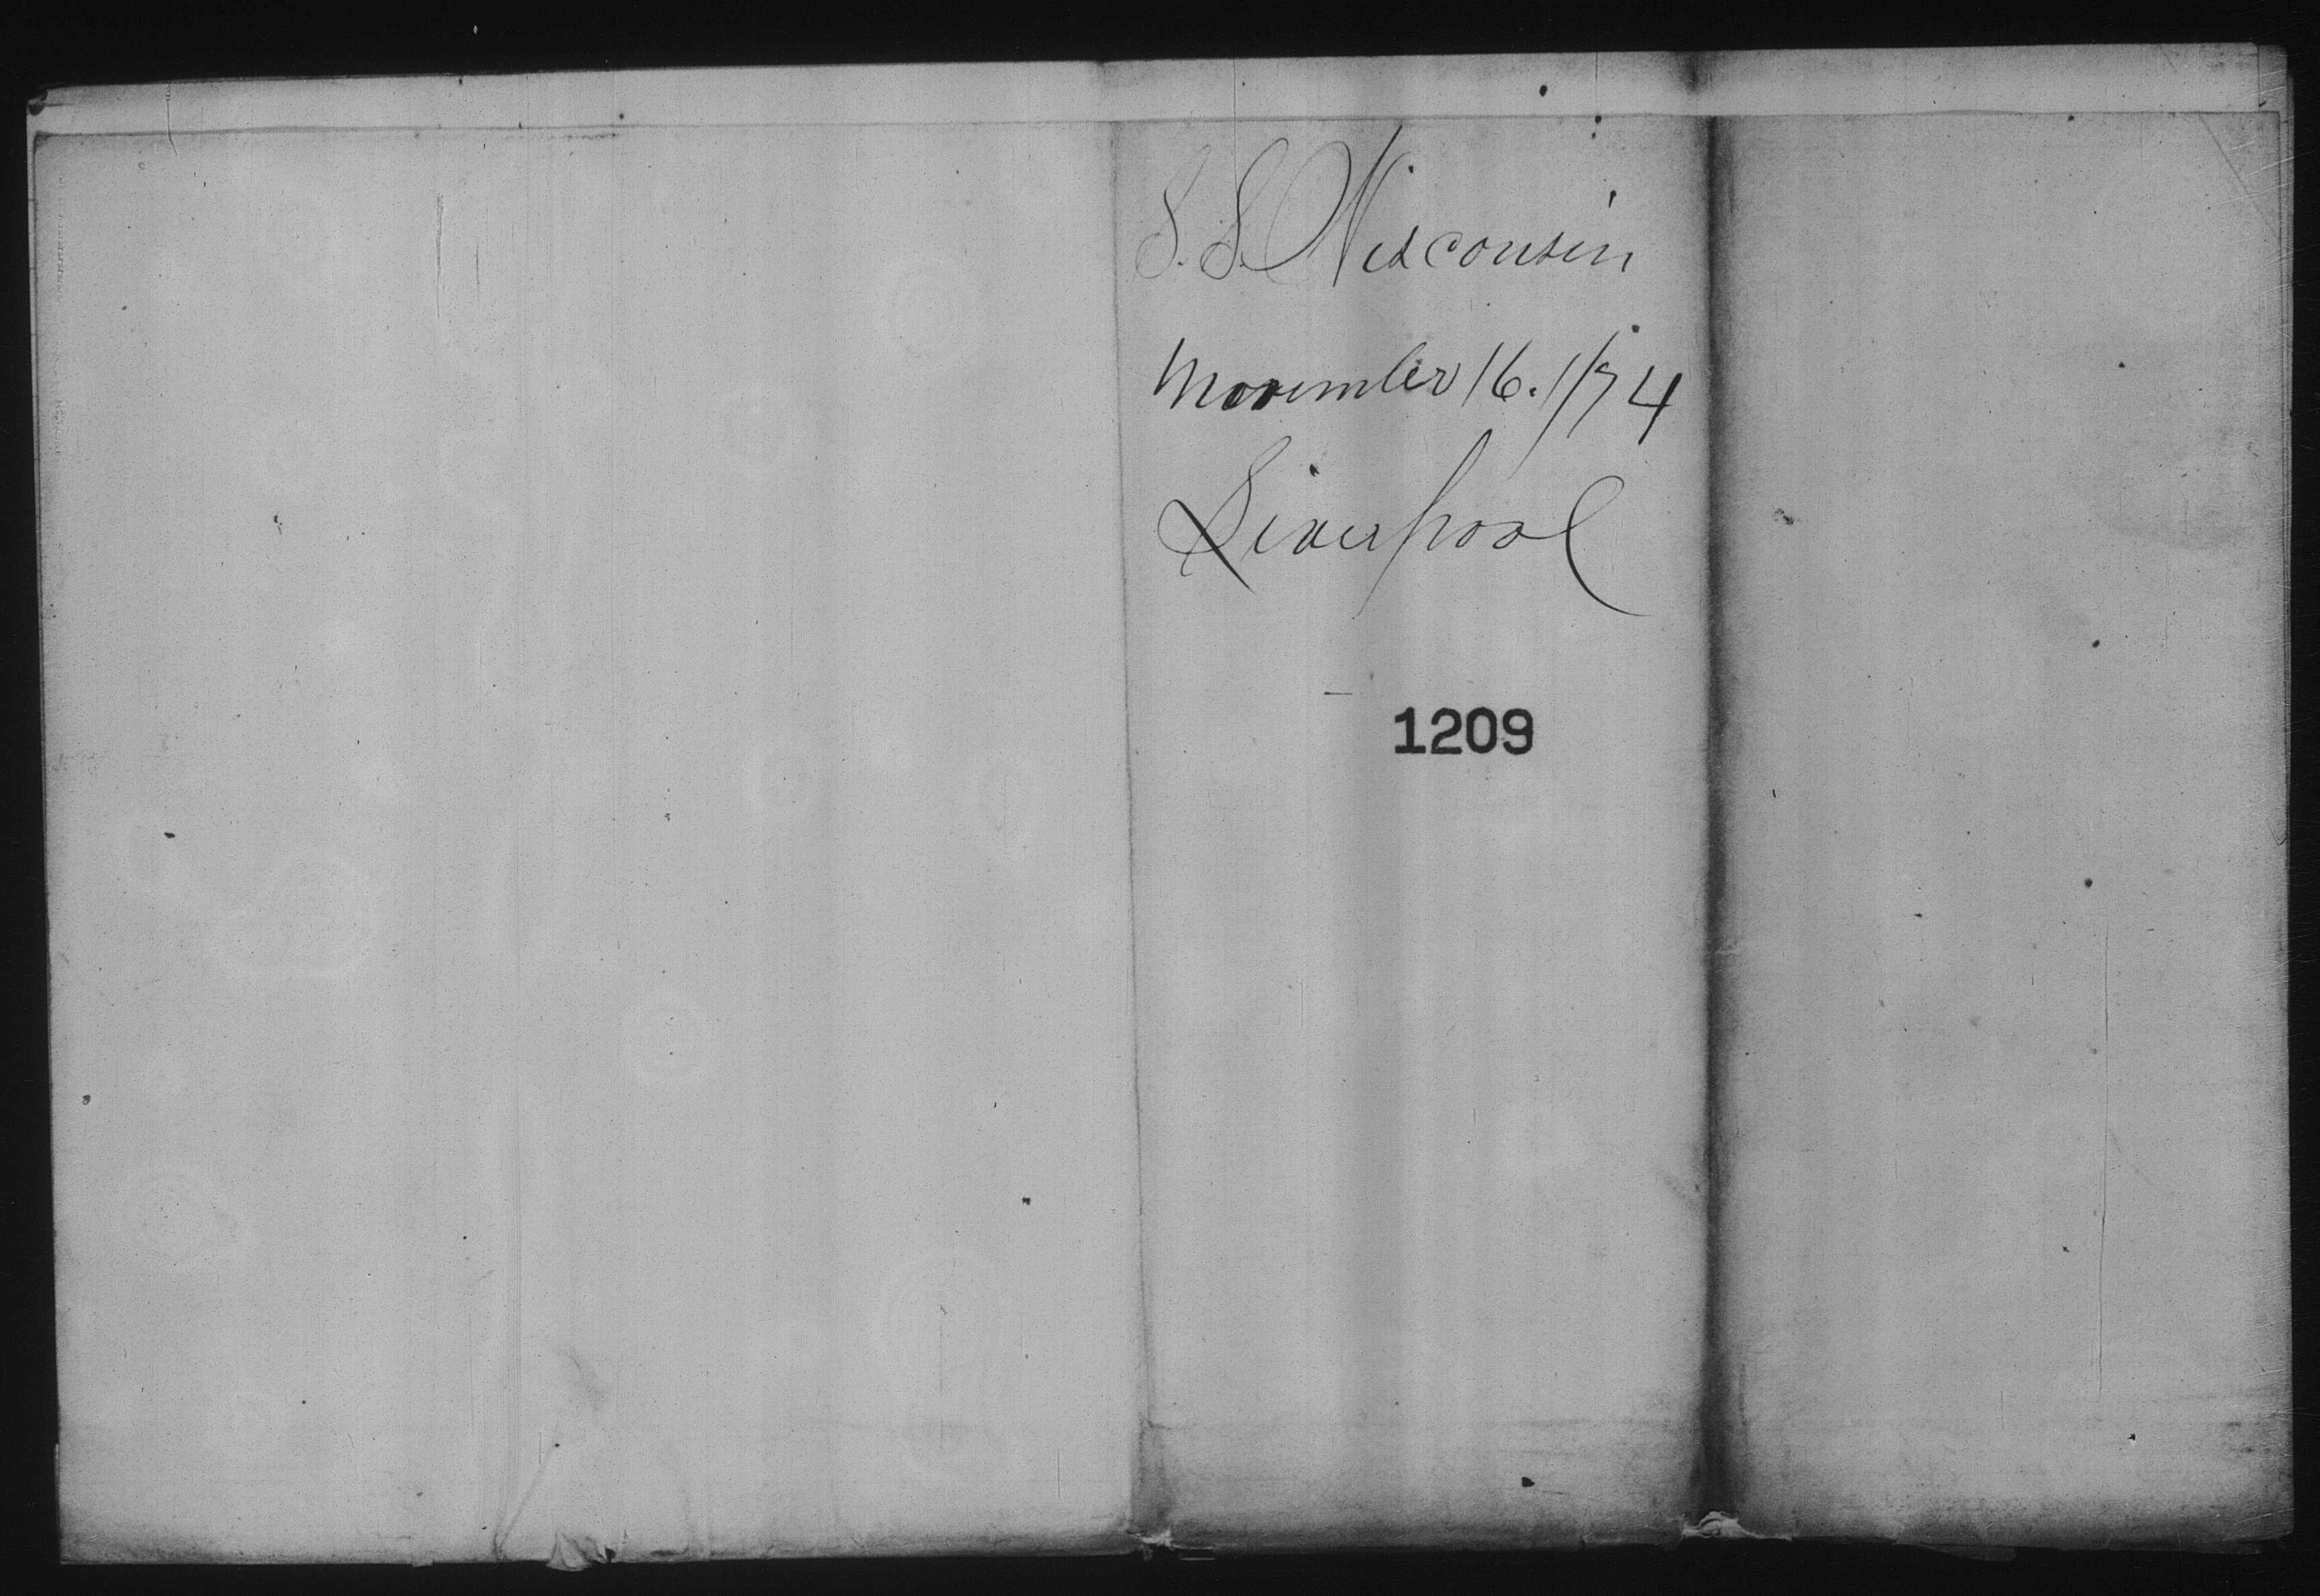 S.S. Wisconsin
November 16. 1874
Liverpool
1209